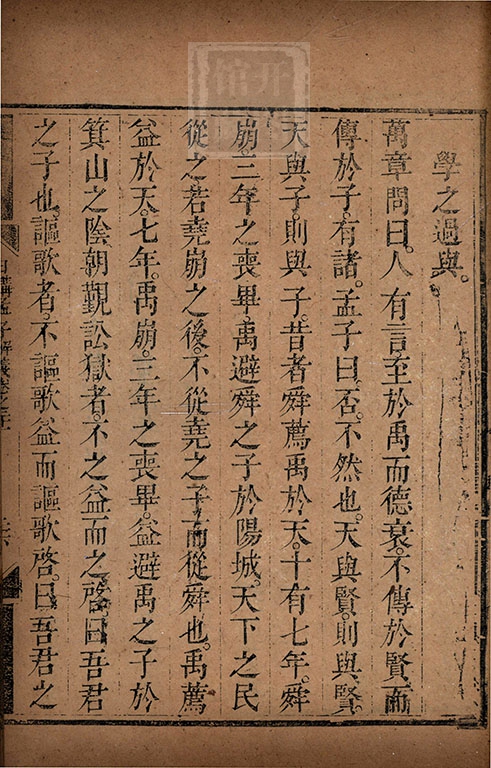 學之過與。
萬章問曰。人有言至於禹而德衰。不傳於賢。而
傳於子。有諸。孟子曰。否。不然也。天與賢。則與賢。
天與子。則與子。昔者舜薦禹於天。十有七年。舜
崩。三年之喪畢。禹避舜之子於陽城。天下之民
從之。若堯崩之後。不從堯之子而從舜也。禹薦
益於天。七年。禹崩。三年之喪畢。益避禹之子於
箕山之陰。朝覲訟獄者。不之益而之啓。曰吾君
之子也。謳歌者。不謳歌益而謳歌啓。曰吾君之
日講孟子解義卷之